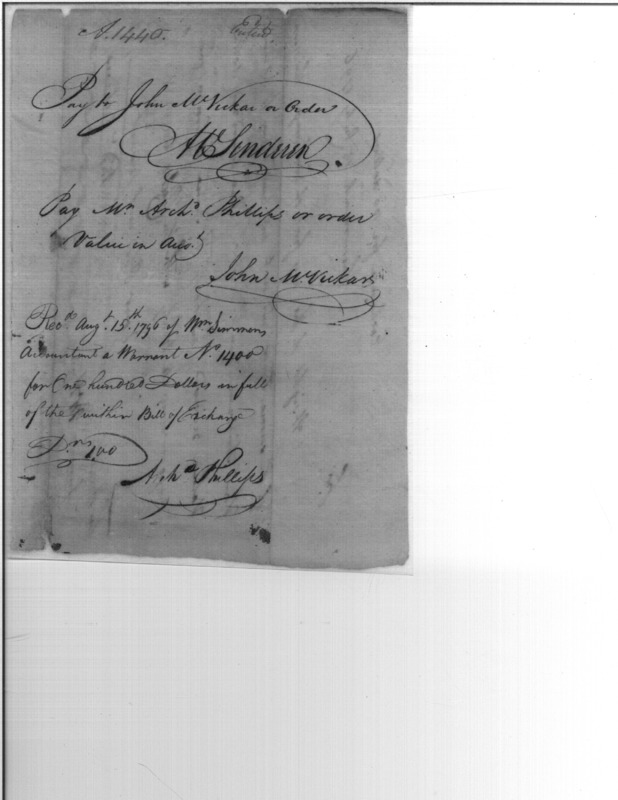 N. 1440.
Pay to John McVickar or Order
Pay Mr. Archd. Phillips or order
Value in Acct.
John McVickar
Recd. Augt. 15th. 1796 of Wm Simmons
Accountant a Warrant No. 1400
for One hundred Dollars in full
of the within Bill of Exchange
Drs 100
Archd Phillips